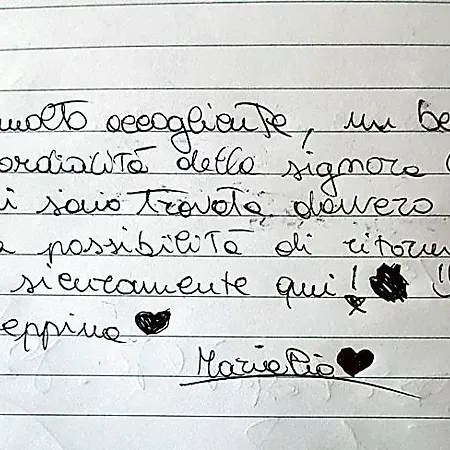 molto accogliente, un be
ordialità della signora
i sono trovata davvero
a possibilità di ritorn
sicuramente qui!
eppina
Maria Pia